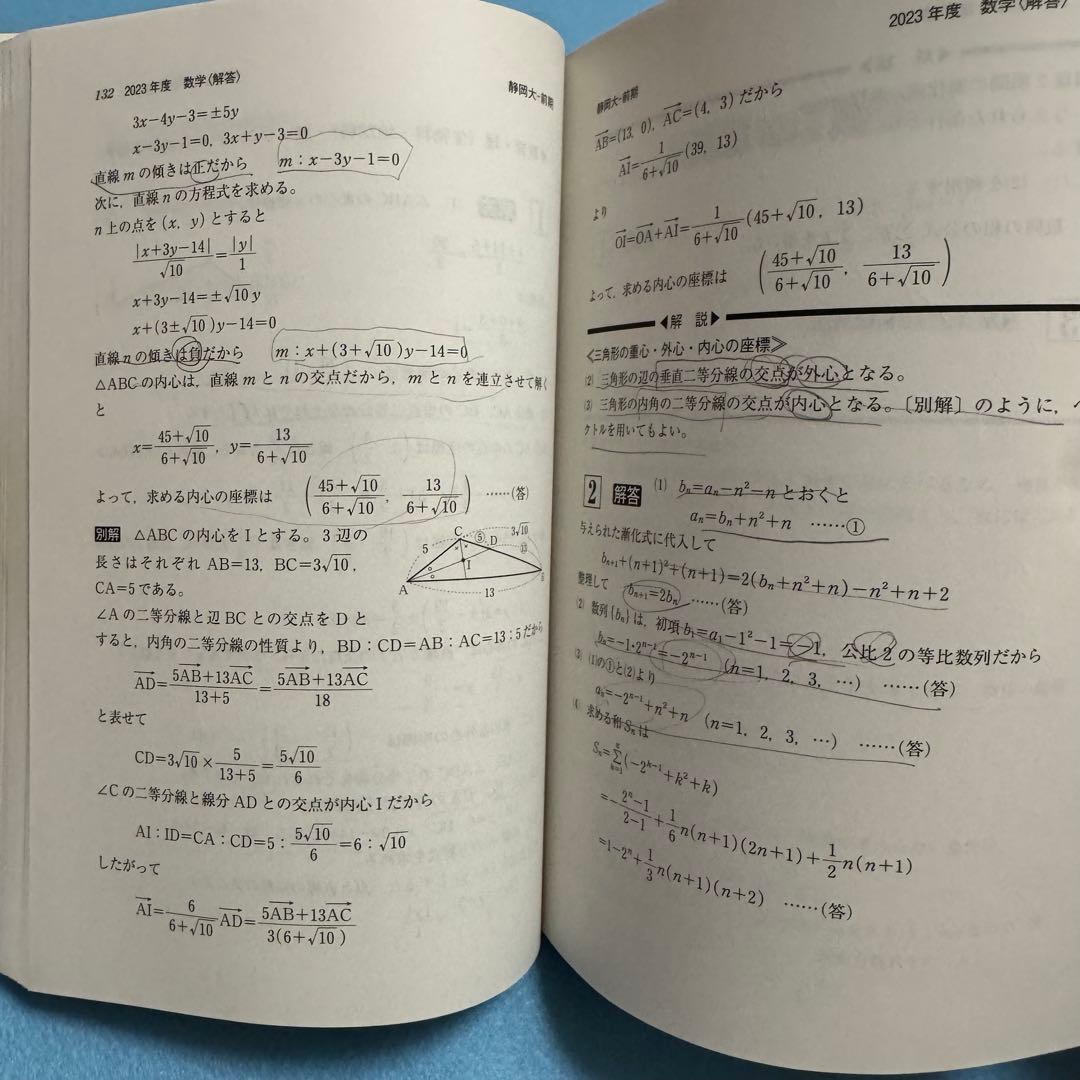 132 2023年度 数学〈解答〉
静岡大-前期
3x−4y−3=±5y
x−3y−1=0, 3x+y−3=0
直線mの傾きは正だから m：x−3y−1=0
次に，直線nの方程式を求める。
n上の点を(x, y)とすると
|x+3y−14|/√10=|y|/1
x+3y−14=±√10y
x+(3±√10)y−14=0
直線nの傾きは負だから m：x+(3+√10)y−14=0
△ABCの内心は，直線mとnの交点だから，mとnを連立させて解く
と
x=(45+√10)/(6+√10), y=13/(6+√10)
よって，求める内心の座標は ((45+√10)/(6+√10), 13/(6+√10)) ……(答)
別解 △ABCの内心をIとする。3辺の
長さはそれぞれ AB=13, BC=3√10,
CA=5である。
∠Aの二等分線と辺BCとの交点をDと
すると，内角の二等分線の性質より，BD：CD=AB：AC=13：5だから
C 3√10
5 ⑤ D ⑬
I
A 13 B
AD=(5AB+13AC)/(13+5)=(5AB+13AC)/18
と表せて
CD=3√10×5/(13+5)=5√10/6
∠Cの二等分線と線分ADとの交点が内心Iだから
AI：ID=CA：CD=5：5√10/6=6：√10
したがって
AI=6/(6+√10)AD=(5AB+13AC)/(3(6+√10))
2023年度 数学〈解答〉
静岡大-前期
AB=(13, 0), AC=(4, 3)だから
AI=1/(6+√10)(39, 13)
より
OI=OA+AI=1/(6+√10)(45+√10, 13)
よって，求める内心の座標は ((45+√10)/(6+√10), 13/(6+√10))
◀解 説▶
≪三角形の重心・外心・内心の座標≫
(2) 三角形の辺の垂直二等分線の交点が外心となる。
(3) 三角形の内角の二等分線の交点が内心となる。〔別解〕のように，ベ
クトルを用いてもよい。
2 解答 (1) bₙ=aₙ−n²−nとおくと
aₙ=bₙ+n²+n ……①
与えられた漸化式に代入して
bₙ₊₁+(n+1)²+(n+1)=2(bₙ+n²+n)−n²+n+2
整理して bₙ₊₁=2bₙ ……(答)
(2) 数列{bₙ}は，初項b₁=a₁−1²−1=−1，公比2の等比数列だから
bₙ=−1·2ⁿ⁻¹=−2ⁿ⁻¹ (n=1, 2, 3, …) ……(答)
(3) (1)の①と(2)より
aₙ=−2ⁿ⁻¹+n²+n (n=1, 2, 3, …) ……(答)
(4) 求める和Sₙは
Sₙ=∑ₖ₌₁ⁿ(−2ᵏ⁻¹+k²+k)
=−(2ⁿ−1)/(2−1)+1/6n(n+1)(2n+1)+1/2n(n+1)
=1−2ⁿ+1/3n(n+1)(n+2) ……(答)